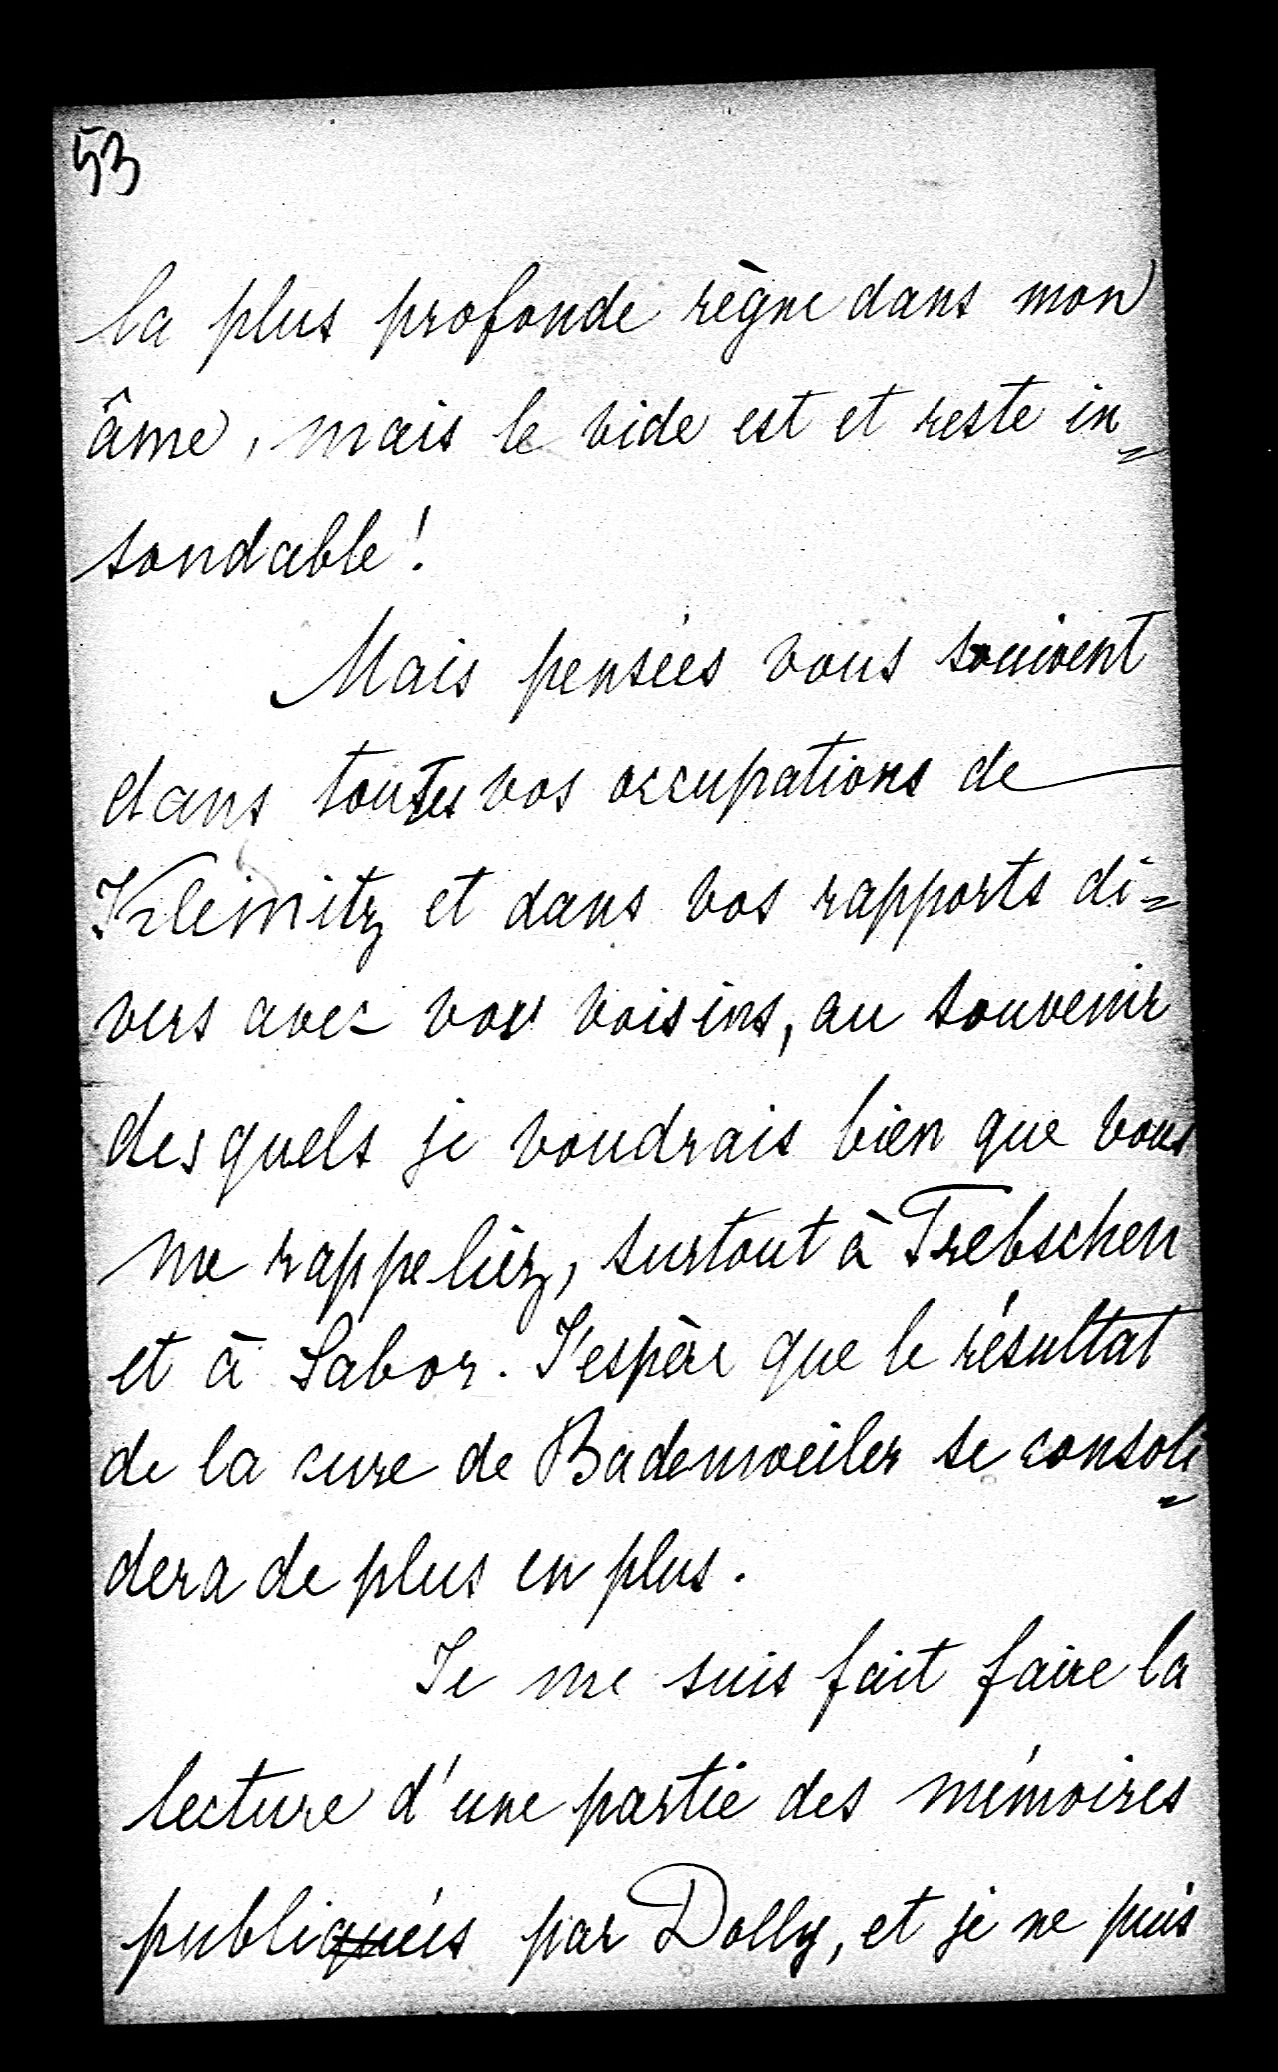 53
la plus profonde règne dans mon
âme, mais le vide est et reste in=
sondable!
Mais pensées vous souivent
dans toutes vos occupations de
Kleinitz et dans vos rapports di=
vers avec vos voisins, au souvenir
desquels je voudrais bien que vous
me rappeliez, surtout à Trebschen
et à Sabor. J'espère que le résultat
de la cure de Badenweiler se consoli=
dera de plus en plus.
Je me suis fait faire la
lecture d'une partie des mémoires
publiquées par Dolly, et je ne puis